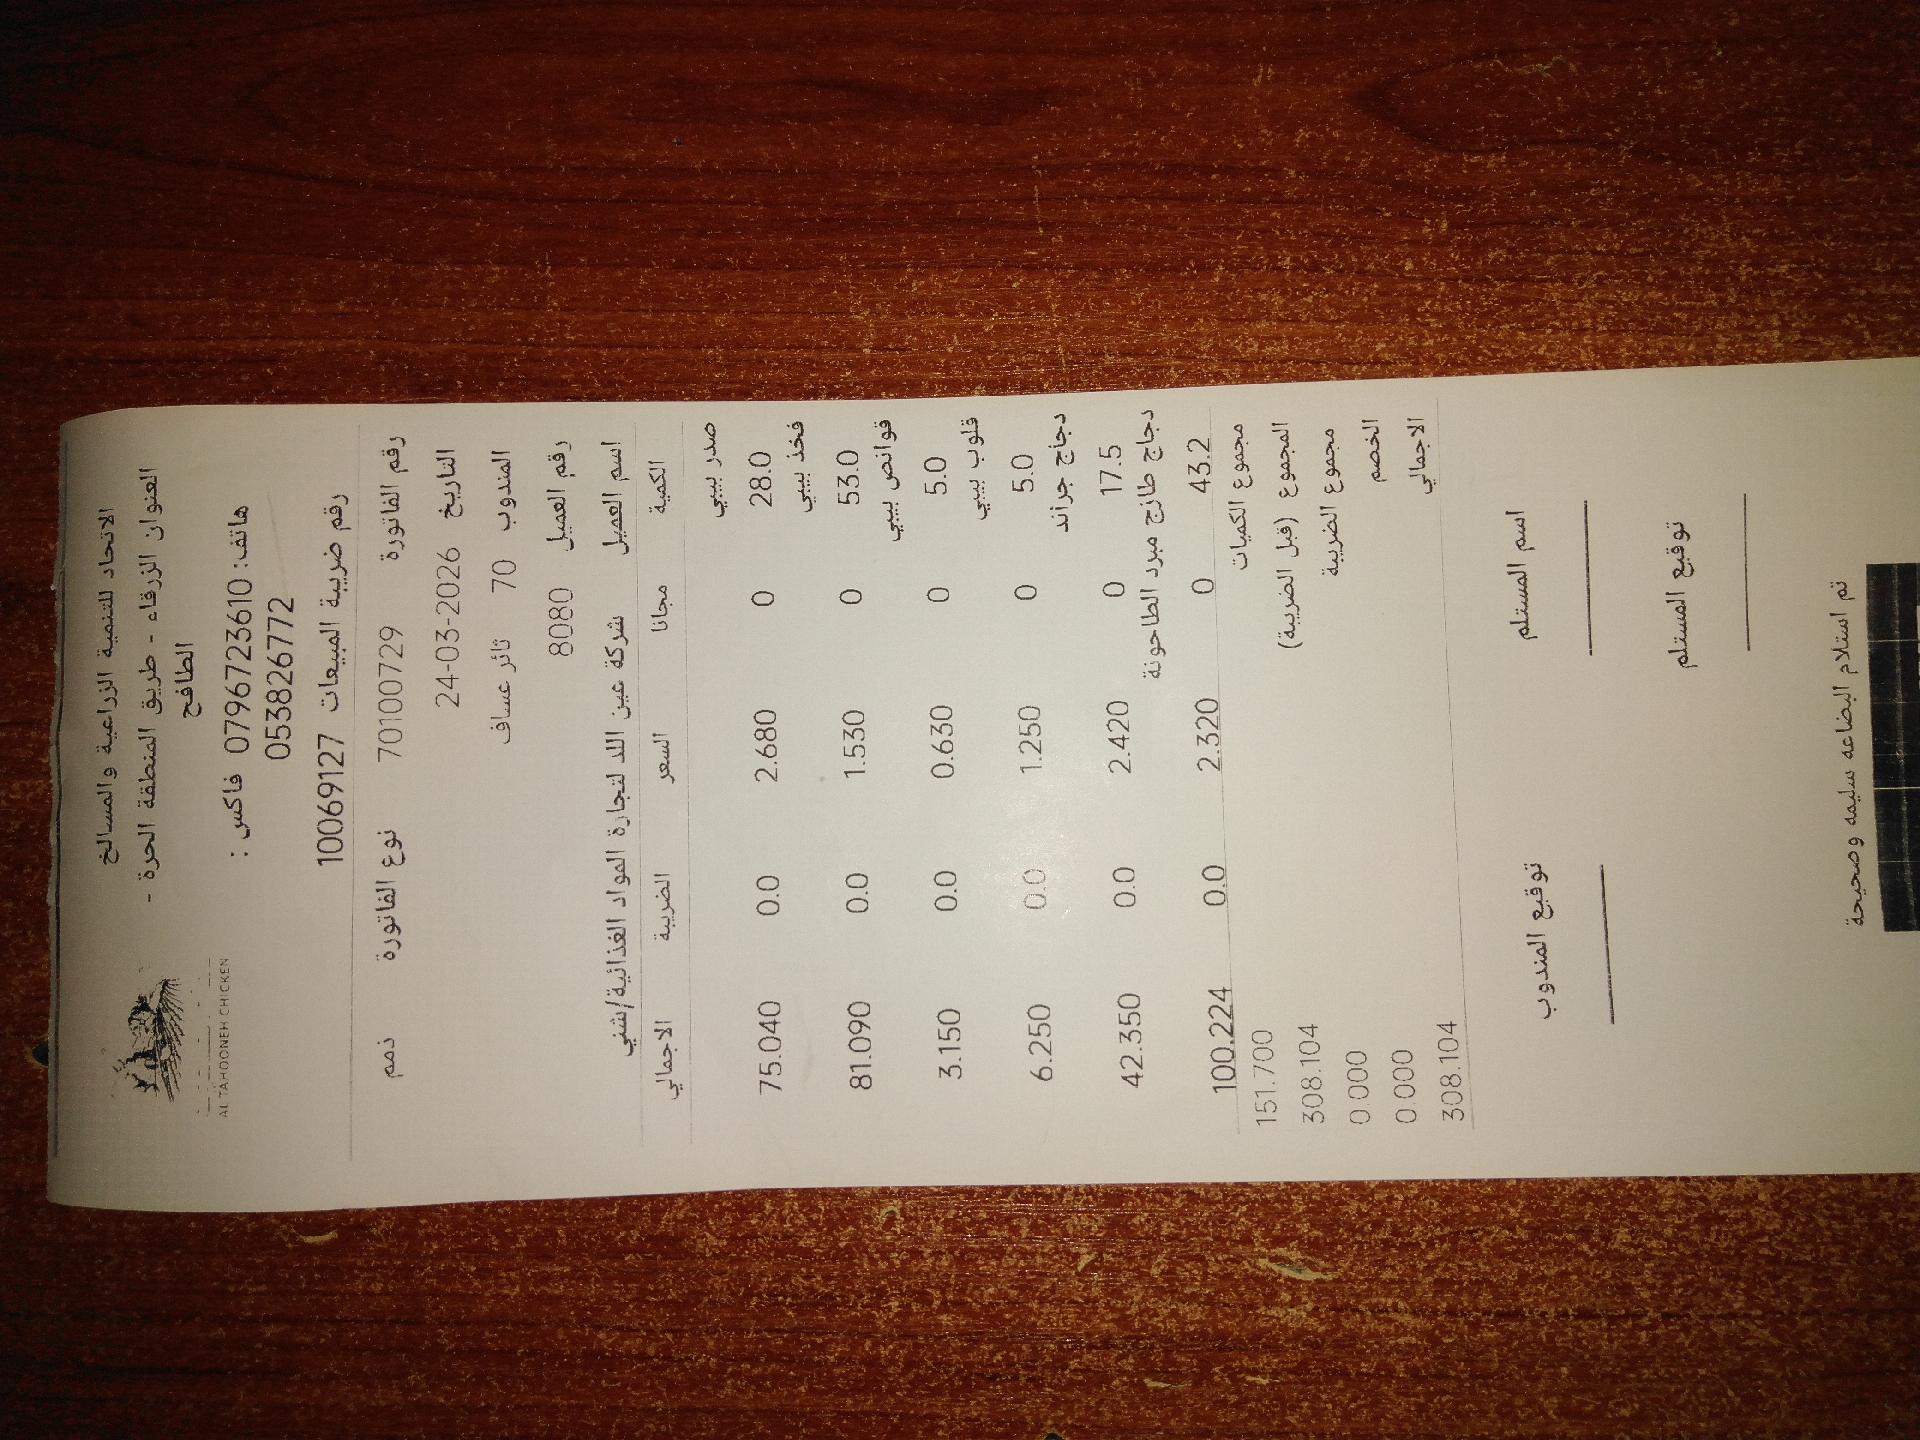 الاتحاد للتنمية الزراعية والمسالخ
العنوان الزرقاء - طريق المنطقة الحرة -
الطافح
هاتف: 0796723610 فاكس :
053826772
رقم ضريبة المبيعات 10069127
AL TAHOONEH CHICKEN
رقم الفاتورة 70100729 نوع الفاتورة ذمم
التاريخ 24-03-2026
المندوب 70 ثائر عساف
رقم العميل 8080
اسم العميل شركة عين اللا لتجارة المواد الغذائية/شني
الكمية مجانا السعر الضريبة الاجمالي
صدر بيبي
28.0 0 2.680 0.0 75.040
فخذ بيبي
53.0 0 1.530 0.0 81.090
قوانص بيبي
5.0 0 0.630 0.0 3.150
قلوب بيبي
5.0 0 1.250 0.0 6.250
دجاج جراند
17.5 0 2.420 0.0 42.350
دجاج طازج مبرد الطاحونة
43.2 0 2.320 0.0 100.224
مجموع الكميات 151.700
المجموع (قبل الضريبة) 308.104
مجموع الضريبة 0.000
الخصم 0.000
الاجمالي 308.104
اسم المستلم توقيع المندوب
توقيع المستلم
تم استلام البضاعه سليمه وصحيحة